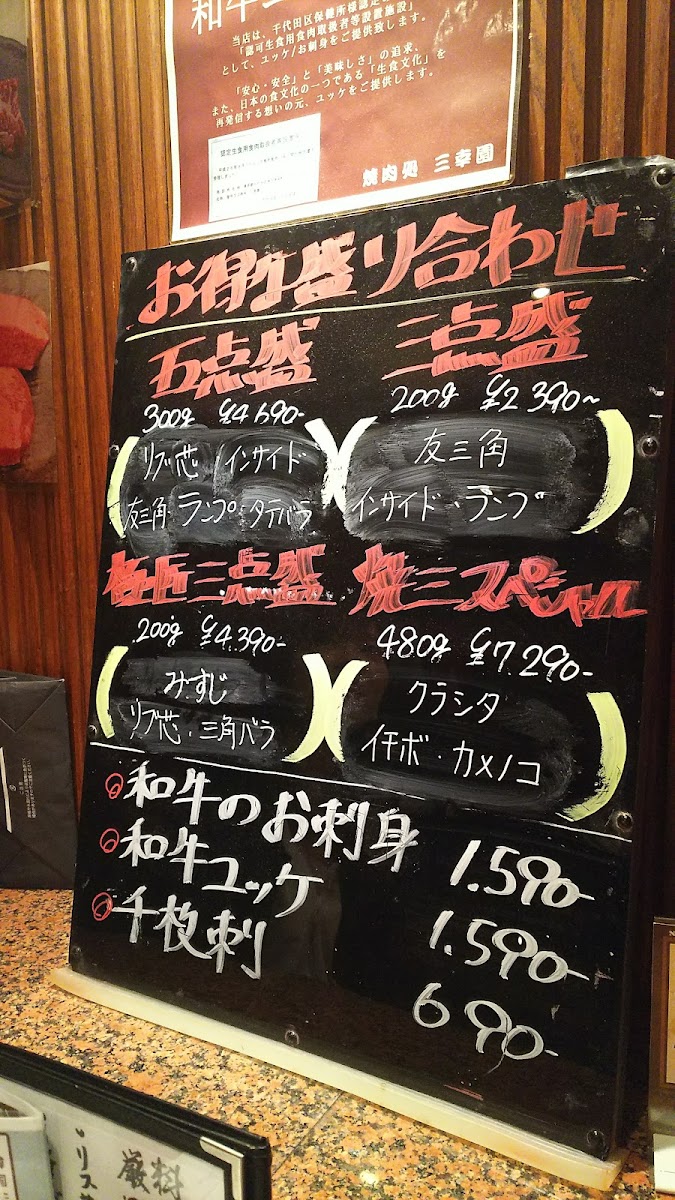 当店は、千代田区保健所様認定
「認可生食用食肉取扱者等設置施設」
として、ユッケ/お刺身をご提供致します。
「安心・安全」と「美味しさ」の追求、
また、日本の食文化の一つである「生食文化」を
再発信する想いの元、ユッケをご提供します。
焼肉処 三幸園
お得な盛り合わせ
五点盛
300g ¥4,690-
リブ芯 インサイド
友三角・ランプ・タテバラ
三点盛
200g ¥2,390~
友三角
インサイド・ランプ
極上三点盛
200g ¥4,390-
みすじ
リブ芯・三角バラ
焼三スペシャル
480g ¥7,290-
クラシタ
イチボ・カメノコ
和牛のお刺身 1.590-
和牛ユッケ 1.590-
千枚刺 690-
厳
料